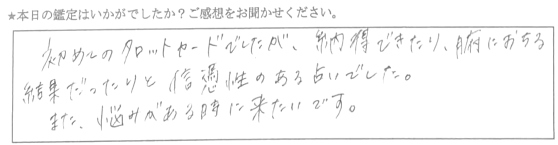 ★本日の鑑定はいかがでしたか？ご感想をお聞かせください。
初めてのタロットカードでしたが、納得できたり、腑におちる
結果だったりと信憑性のある占いでした。
また、悩みがある時に来たいです。